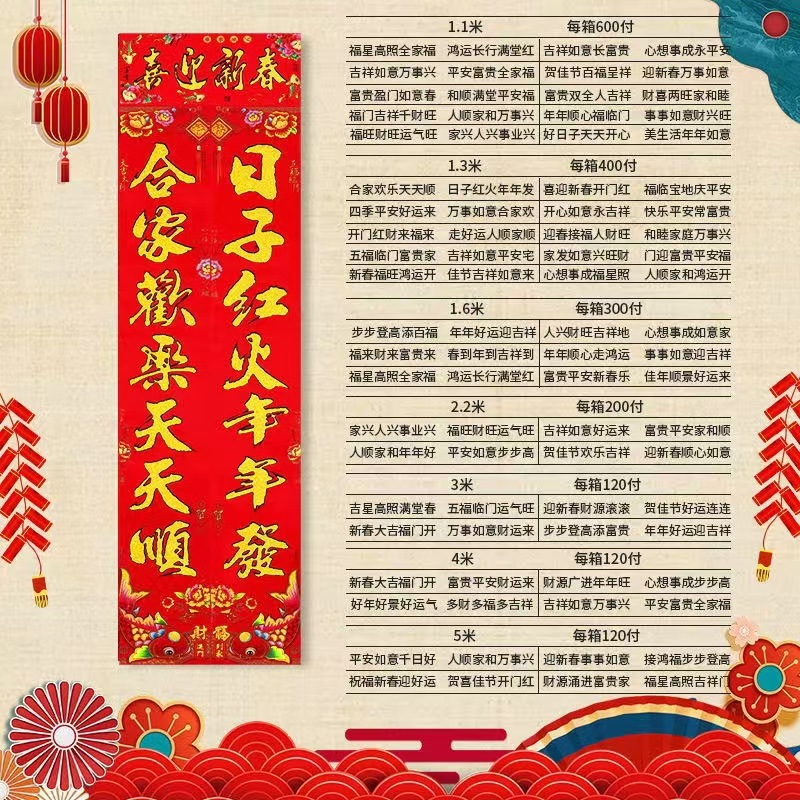 喜迎新春
日子红火年年發
合家歡樂天天順
財 勝
1.1米 每箱600付
福星高照全家福 鸿运长行满堂红 吉祥如意长富贵 心想事成永平安
吉祥如意万事兴 平安富贵全家福 贺佳节百福呈祥 迎新春万事如意
富贵盈门如意春 和顺满堂平安福 富贵双全人吉祥 财喜两旺家和睦
福门吉祥千财旺 人顺家和万事兴 年年顺心福临门 事事如意财兴旺
福旺财旺运气旺 家兴人兴事业兴 好日子天天开心 美生活年年如意
1.3米 每箱400付
合家欢乐天天顺 日子红火年年发 喜迎新春开门红 福临宝地庆平安
四季平安好运来 万事如意合家欢 开心如意永吉祥 快乐平安常富贵
开门红财来福来 走好运人顺家顺 迎春接福人财旺 和睦家庭万事兴
五福临门富贵家 吉祥如意平安宅 家发如意兴旺财 门迎富贵平安福
新春福旺鸿运开 佳节吉祥如意来 心想事成福星照 人顺家和鸿运开
1.6米 每箱300付
步步登高添百福 年年好运迎吉祥 人兴财旺吉祥地 心想事成如意家
福来财来富贵来 春到年到吉祥到 年年顺心走鸿运 事事如意迎吉祥
福星高照全家福 鸿运长行满堂红 富贵平安新春乐 佳年顺景好运来
2.2米 每箱200付
家兴人兴事业兴 福旺财旺运气旺 吉祥如意好运来 富贵平安家和顺
人顺家和年年好 平安如意步步高 贺佳节欢乐吉祥 迎新春顺心如意
3米 每箱120付
吉星高照满堂春 五福临门运气旺 迎新春财源滚滚 贺佳节好运连连
新春大吉福门开 万事如意财运来 步步登高添富贵 年年好运迎吉祥
4米 每箱120付
新春大吉福门开 富贵平安财运来 财源广进年年旺 心想事成步步高
好年好景好运气 多财多福多吉祥 吉祥如意万事兴 平安富贵全家福
5米 每箱120付
平安如意千日好 人顺家和万事兴 迎新春事事如意 接鸿福步步登高
祝福新春迎好运 贺喜佳节开门红 财源涌进富贵家 福星高照吉祥门